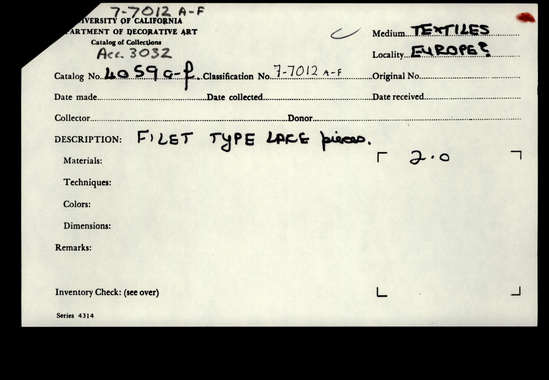 7-7012 A-F
VERSITY OF CALIFORNIA
ARTMENT OF DECORATIVE ART
Catalog of Collections
Acc. 3032
Medium TEXTILES
Locality EUROPE?
Catalog No. 4059a-f Classification No. 7-7012 A-F Original No.
Date made Date collected Date received
Collector Donor
DESCRIPTION: FILET TYPE LACE pieces.
Materials: 2.0
Techniques:
Colors:
Dimensions:
Remarks:
Inventory Check: (see over)
Series 4314